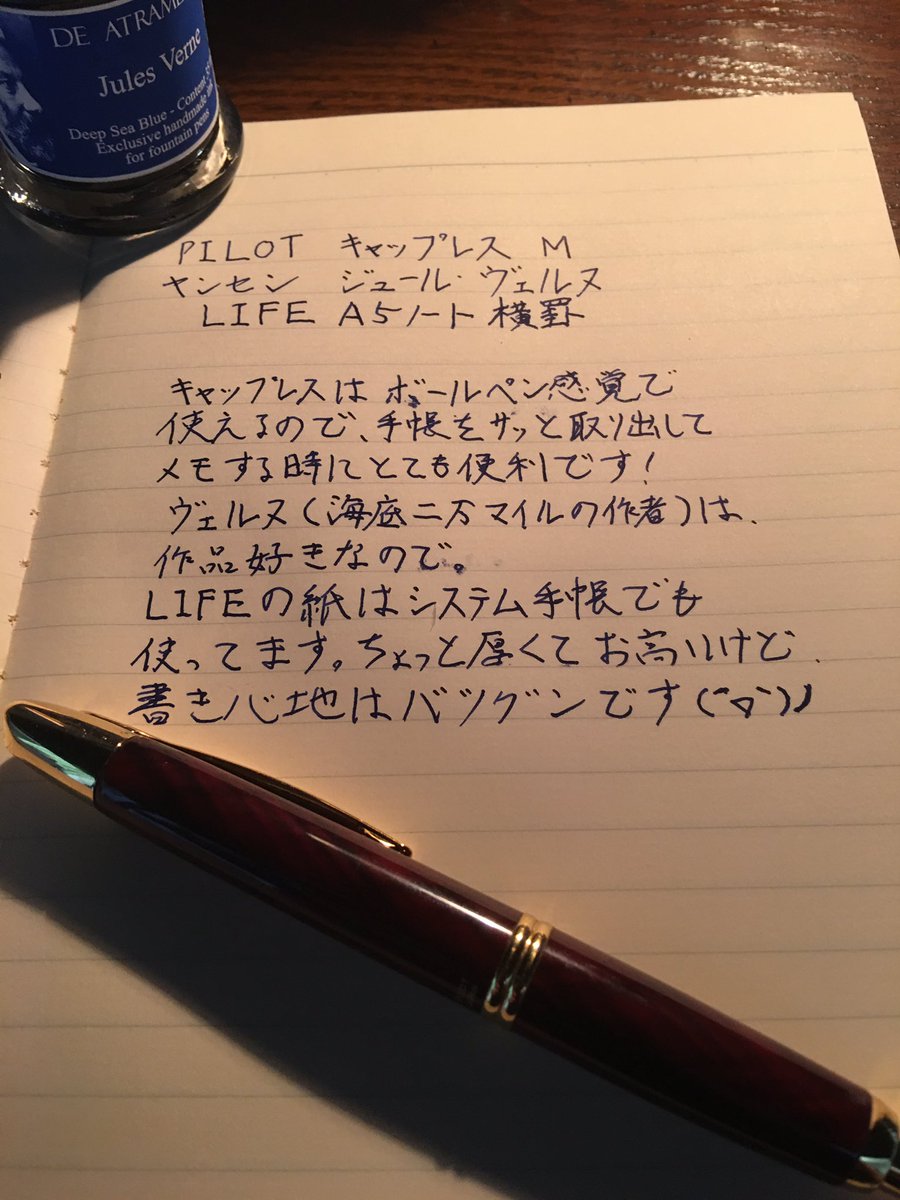 DE ATRAME
Jules Verne
Deep Sea Blue - Content
Exclusive handmade ink
for fountain pens
PILOT キャップレス M
ヤンセン ジュール・ヴェルヌ
LIFE A5ノート 横罫
キャップレスは ボールペン感覚で
使えるので、手帳をサッと取り出して
メモする時にとても便利です!
ヴェルヌ(海底二万マイルの作者)は、
作品好きなので。
LIFEの紙はシステム手帳でも
使ってます。ちょっと厚くてお高いけど、
書き心地はバツグンです